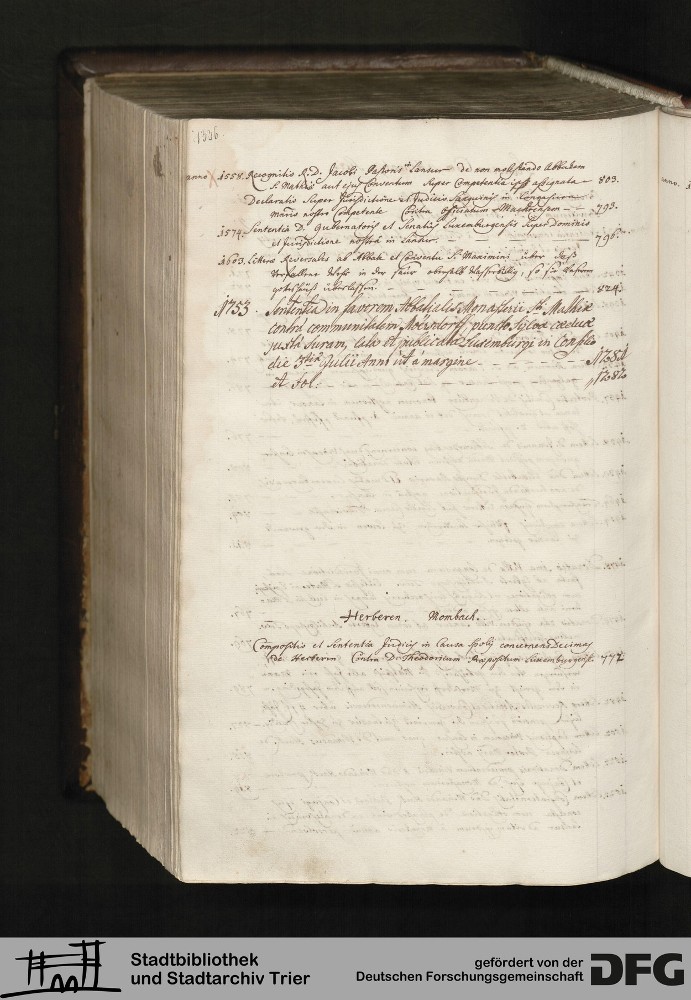 1336.
anno 1558. Recognitio R. D. Jacobi Pastoris Lansur de non molestando Abbatem
S. Mathiæ aut ejus Conventum super Competentia ipsi assignata — 803.
Declaratio super Jurisdictione et Judicio Sanguinis in
nostro Competente Contra officiatum — 793.
1574. Sententia D. Gubernatoris et Senatus Luxemburgensis super Dominio
et Jurisdictione nostra in Lansur. — 796.
1603. Litteræ Reversales ab Abbate et Conventu S. Maximini über
in der so sie
gotteshaus überlassen. — 824.
1753. Sententia in favorem Abbatialis Monasterii S. Mathiæ
contra communitatem Möersdorff puncto Sylvæ cæduæ
juxta Suram, lata et publicata Luxemburgi in Consilio
die 3tia Julii Anni ut a margine — 1381
et fol: — 1382
Herberen. Mombach.
Compositio et Sententia Judicis in Causa Spolii concernens Decimas
de Herberen Contra D. Theodoricum Præpositum Luxemburgens. 777.
Stadtbibliothek
und Stadtarchiv Trier
gefördert von der
Deutschen Forschungsgemeinschaft
DFG